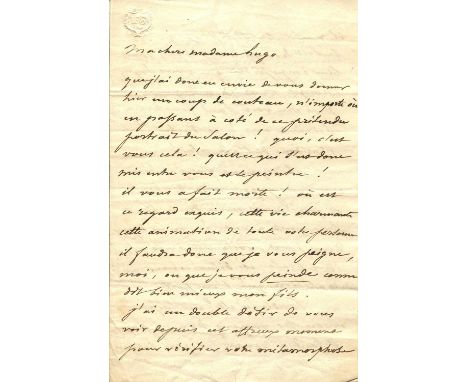 Ma chère madame hugo
que j'ai donc eu envie de vous donner
hier un coup de couteau, n'importe où
en passant à coté de ce prétendu
portrait du Salon ! quoi, c'est
vous cela ! qu'est ce qui s'est donc
mis entre vous et le peintre !
il vous a fait morte ! où est
ce regard exquis, cette vie charmante
cette animation de toute votre personne
il faudra donc que je vous peigne,
moi, ou que je vous peinde comme
dit bien mieux mon fils.
j'ai un double désir de vous
voir depuis cet affreux moment
pour vérifier votre métamorphose